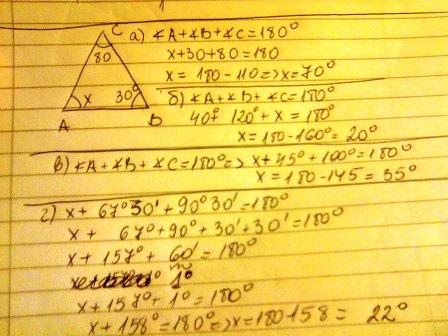 C
80
x
30°
A
B
а) ∢A+∢B+∢C=180°
x+30+80=180
x= 180-110=>x=70°
б) ∢A+∢B+∢C=180°
40°+ 120°+x=180°
x=180-160°=20°
в) ∢A+∢B+∢C=180°=> x+45°+100°=180°
x=180-145=35°
г) x+ 67°30'+90°30'=180°
x+ 67°+90°+30'+30'=180°
x+157°+ 60'=180°
1°
x+157°+1°=180°
x+158°=180°=>x=180-158= 22°